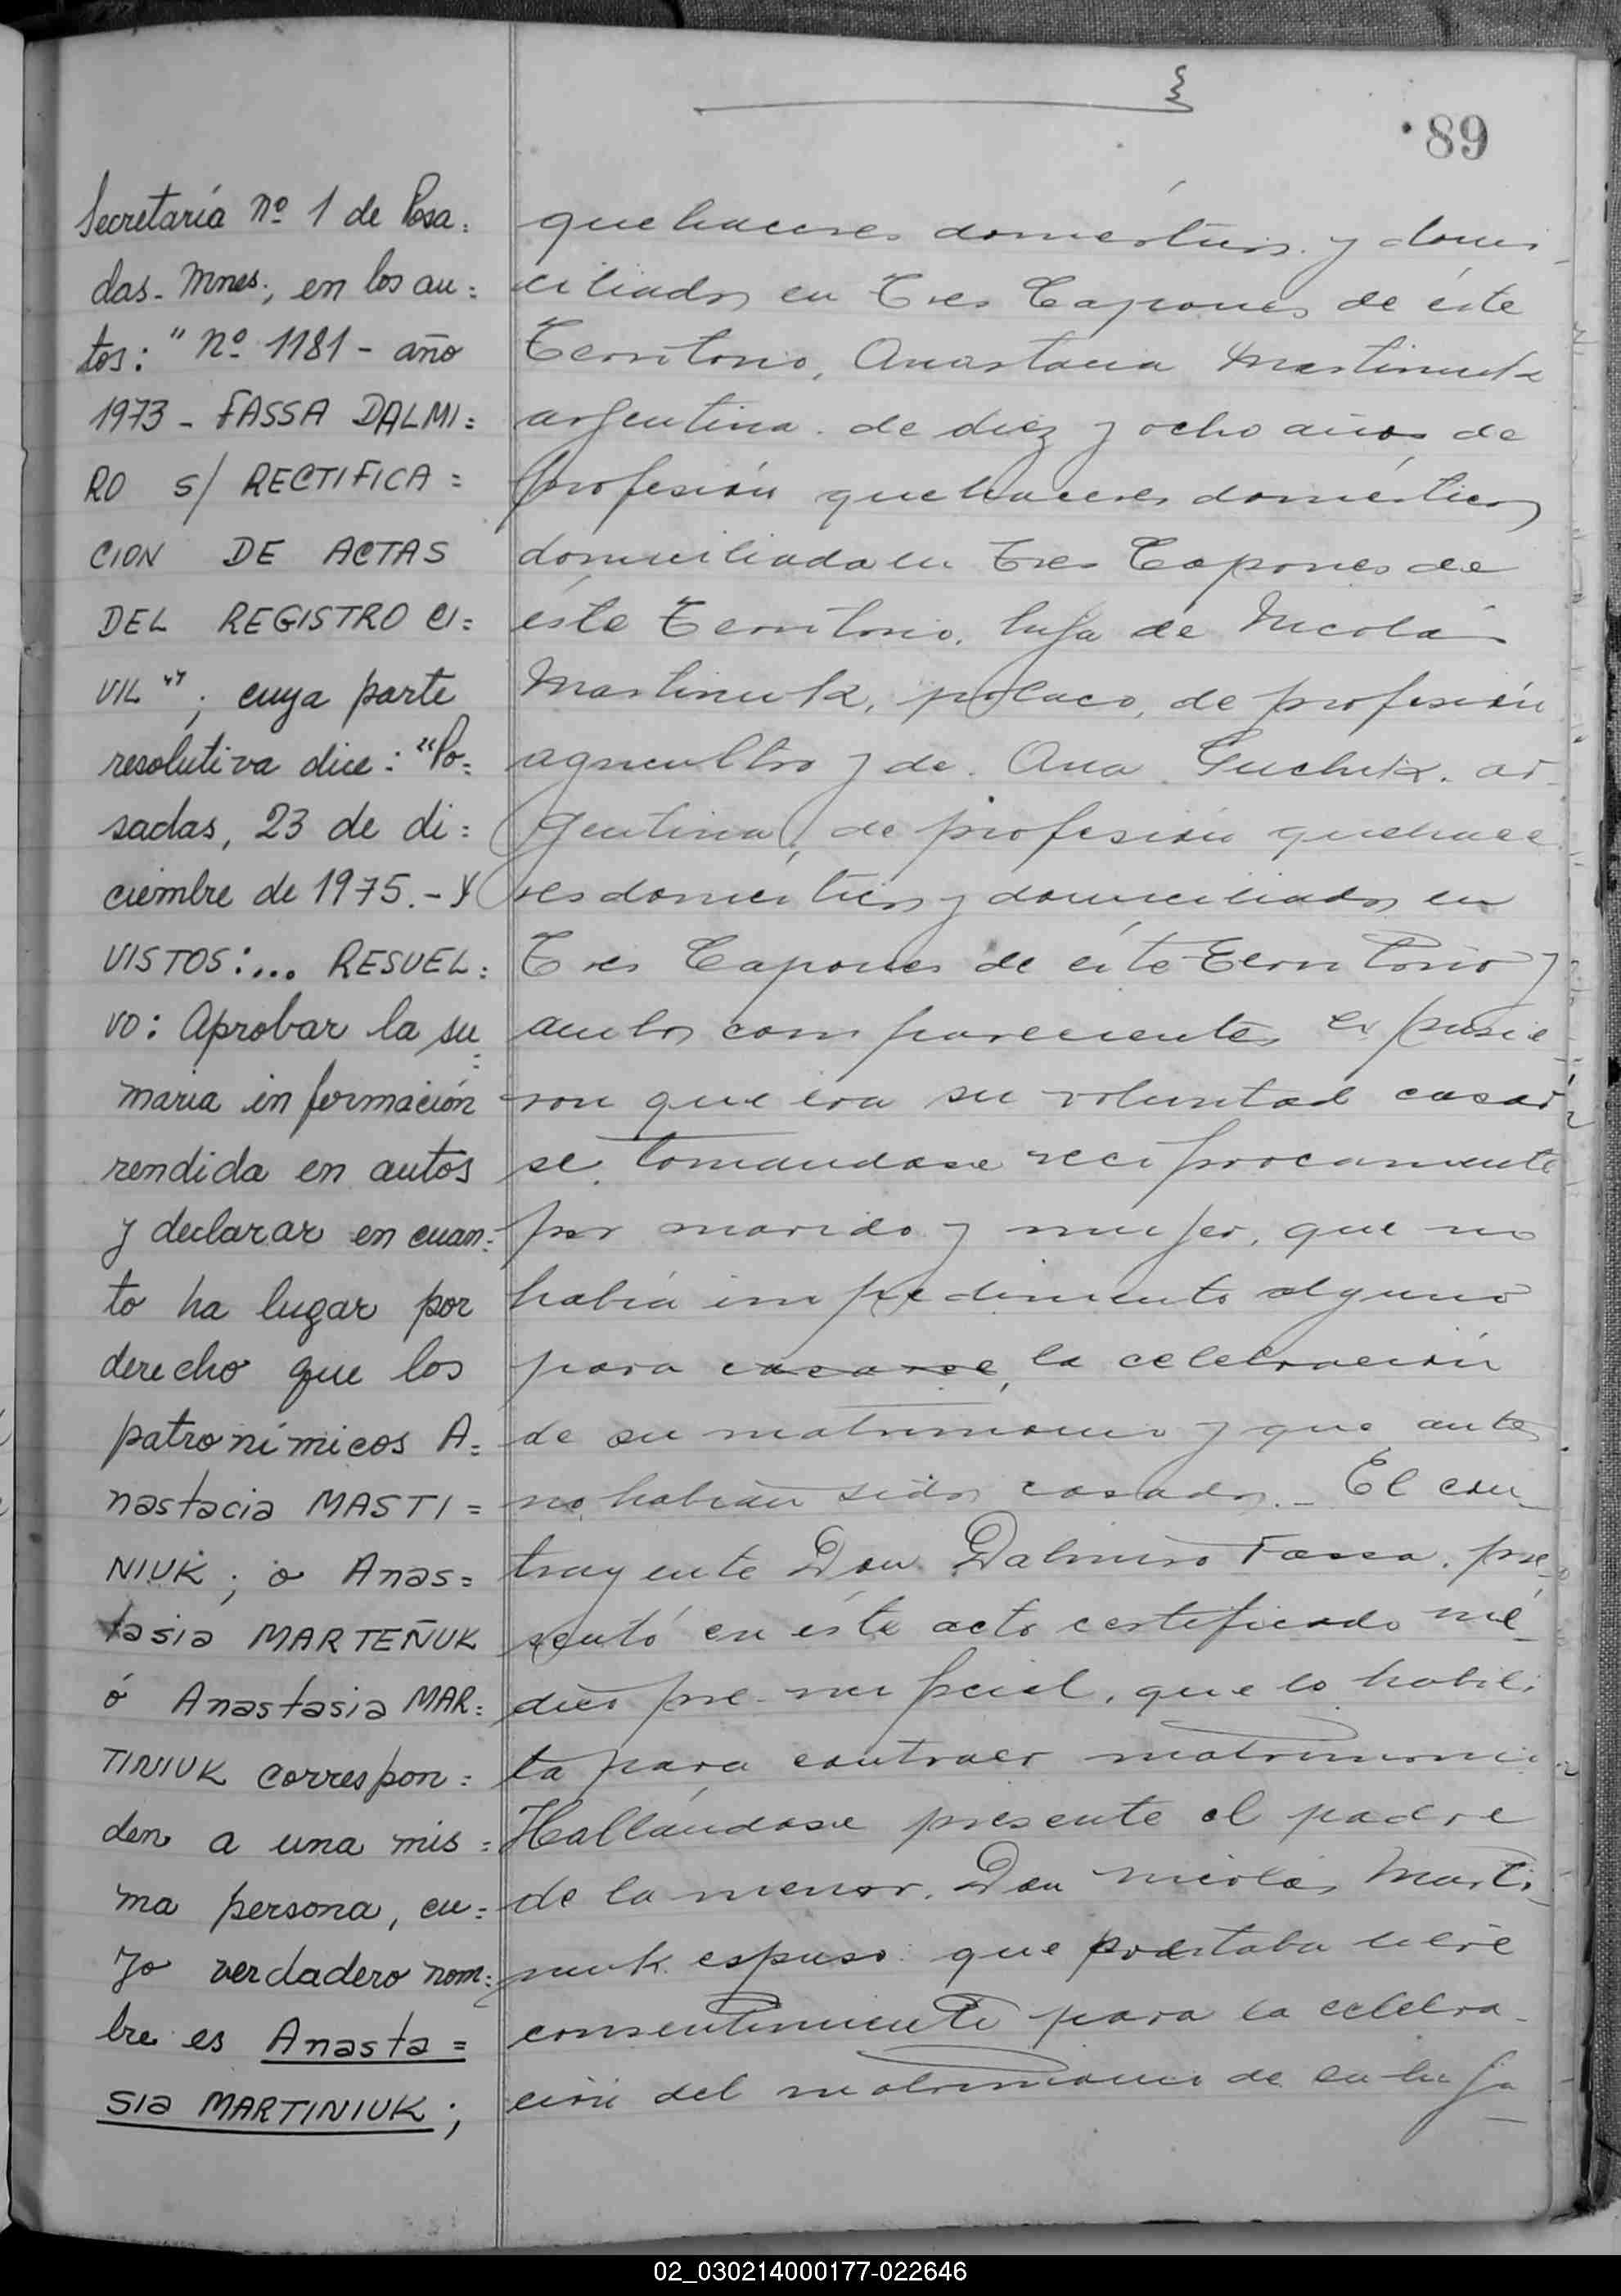 89
Secretaría nº 1 de Posa=
das- Mnes., en los au=
tos: "nº 1181 - año
1973 - FASSA DALMI=
RO s/ RECTIFICA=
CION DE ACTAS
DEL REGISTRO CI=
VIL"; cuya parte
resolutiva dice: "Po=
sadas, 23 de di=
ciembre de 1975.- Y
VISTOS:... RESUEL=
VO: Aprobar la su=
maria información
rendida en autos
y declarar en cuan=
to ha lugar por
derecho que los
patronímicos A=
nastacia MASTI=
NIUK; o Anas=
tasia MARTEÑUK
ó Anastasia MAR=
TINIUK correspon=
den a una mis=
ma persona, cu=
yo verdadero nom=
bre es Anasta=
sia MARTINIUK;
quehaceres domésticos y domi-
ciliados en Tres Capones de éste
Territorio, Anastacia Martinuk
argentina. de diez y ocho años de
profesión quehaceres domésticos
domiciliada en Tres Capones de
éste Territorio, hija de Nicolás
Martinuk, polaco, de profesión
agricultor y de. Ana Guchuk. ar-
gentina, de profesión quehace
res domésticos y domiciliados en
Tres Capones de éste Territorio y
ambos comparecientes expusie-
ron que era su voluntad casar
se. tomandose reciprocamente
por marido y mujer, que no
había impedimento alguno
para casarse, la celebración
de su matrimonio y que antes
no habían sido casados.- El con-
trayente Don Dalmiro Fassa. pre-
sentó en éste acto certificado mé-
dico pre-nupcial, que lo habili
ta para contraer matrimonio
Hallándose presente el padre
de la menor. Don Nicolás Marti-
nuk espuso: que prestaba libre
consentimiento para la celebra-
ción del matrimonio de su hija
02_030214000177-022646